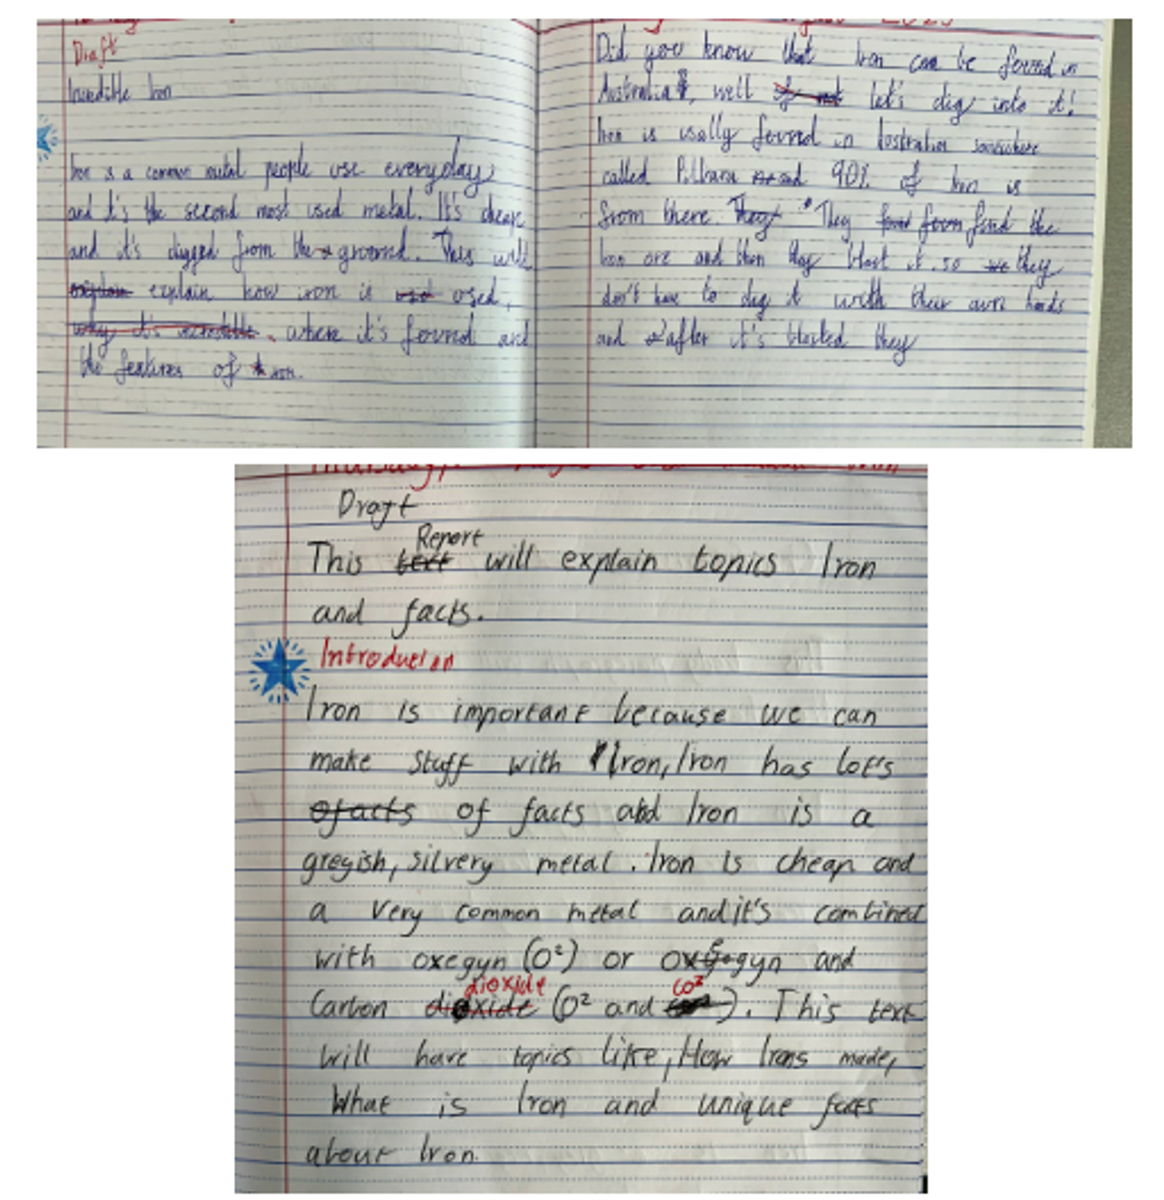 Draft
Incredible Iron
Iron is a common metal people use everyday
and it's the second most used metal. It's cheap
and it's digged from the ground. This will
explain explain how iron is used used,
why it's incredible, where it's fovnd and
the features of iron.
Did you know that Iron can be fovnd in
Australia, well if not let's dig into it!
Iron is usally fovnd in Australia somewhere
called Pilbara and 90% of Iron is
from there. They They find the
Iron ore and then they blast it so we they
don't have to dig it with their own hands
and after it's blasted they
Draft
Report
This text will explain topics Iron
and facts.
Introducion
Iron is important because we can
make stuff with Iron, Iron has lot's
ofacts of facts and Iron is a
greyish, silvery metal. Iron is cheap and
a very common metal and it's combined
with oxegyn (O²) or oxegyn and
dioxide CO²
Carbon dioxide (O² and ). This text
will have topics like, How Irons made,
What is Iron and unique facts
about Iron.